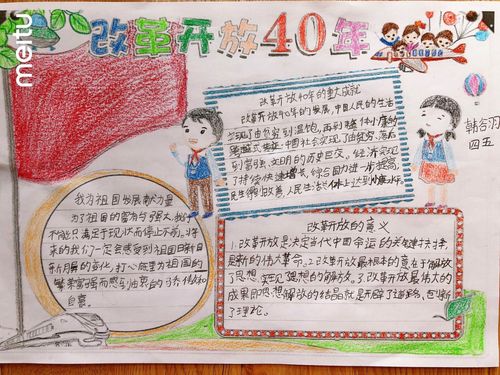 meitu
改革开放40年
韩谷羽
四五
改革开放40年的重大成就
改革开放40年的发展,中国人民的生活
实现了由贫穷到温饱,再到整体小康的
跨越式转变。中国社会实现了由贫穷、落后
到富强、文明的历史巨变。经济实现
了持续快速增长,综合国力进一步提高,
民生得到改善,人民生活总体上达到小康水平。
我为祖国发展献力量
为了祖国的富有与强大,我们
不能只满足于现状而停止不前。将
来的我们一定会感受到祖国日新日
新月异的变化,打心底里为祖国的
繁荣富强而感到由衷的
自豪。
改革开放的意义
1.改革开放是决定当代中国命运的关键抉择,
是新的伟大革命。2.改革开放最根本的意在于解放
了思想,实现了思想的解放。3.改革开放最伟大的
成果即思想解放的结晶就是开辟了道路,
了理论。